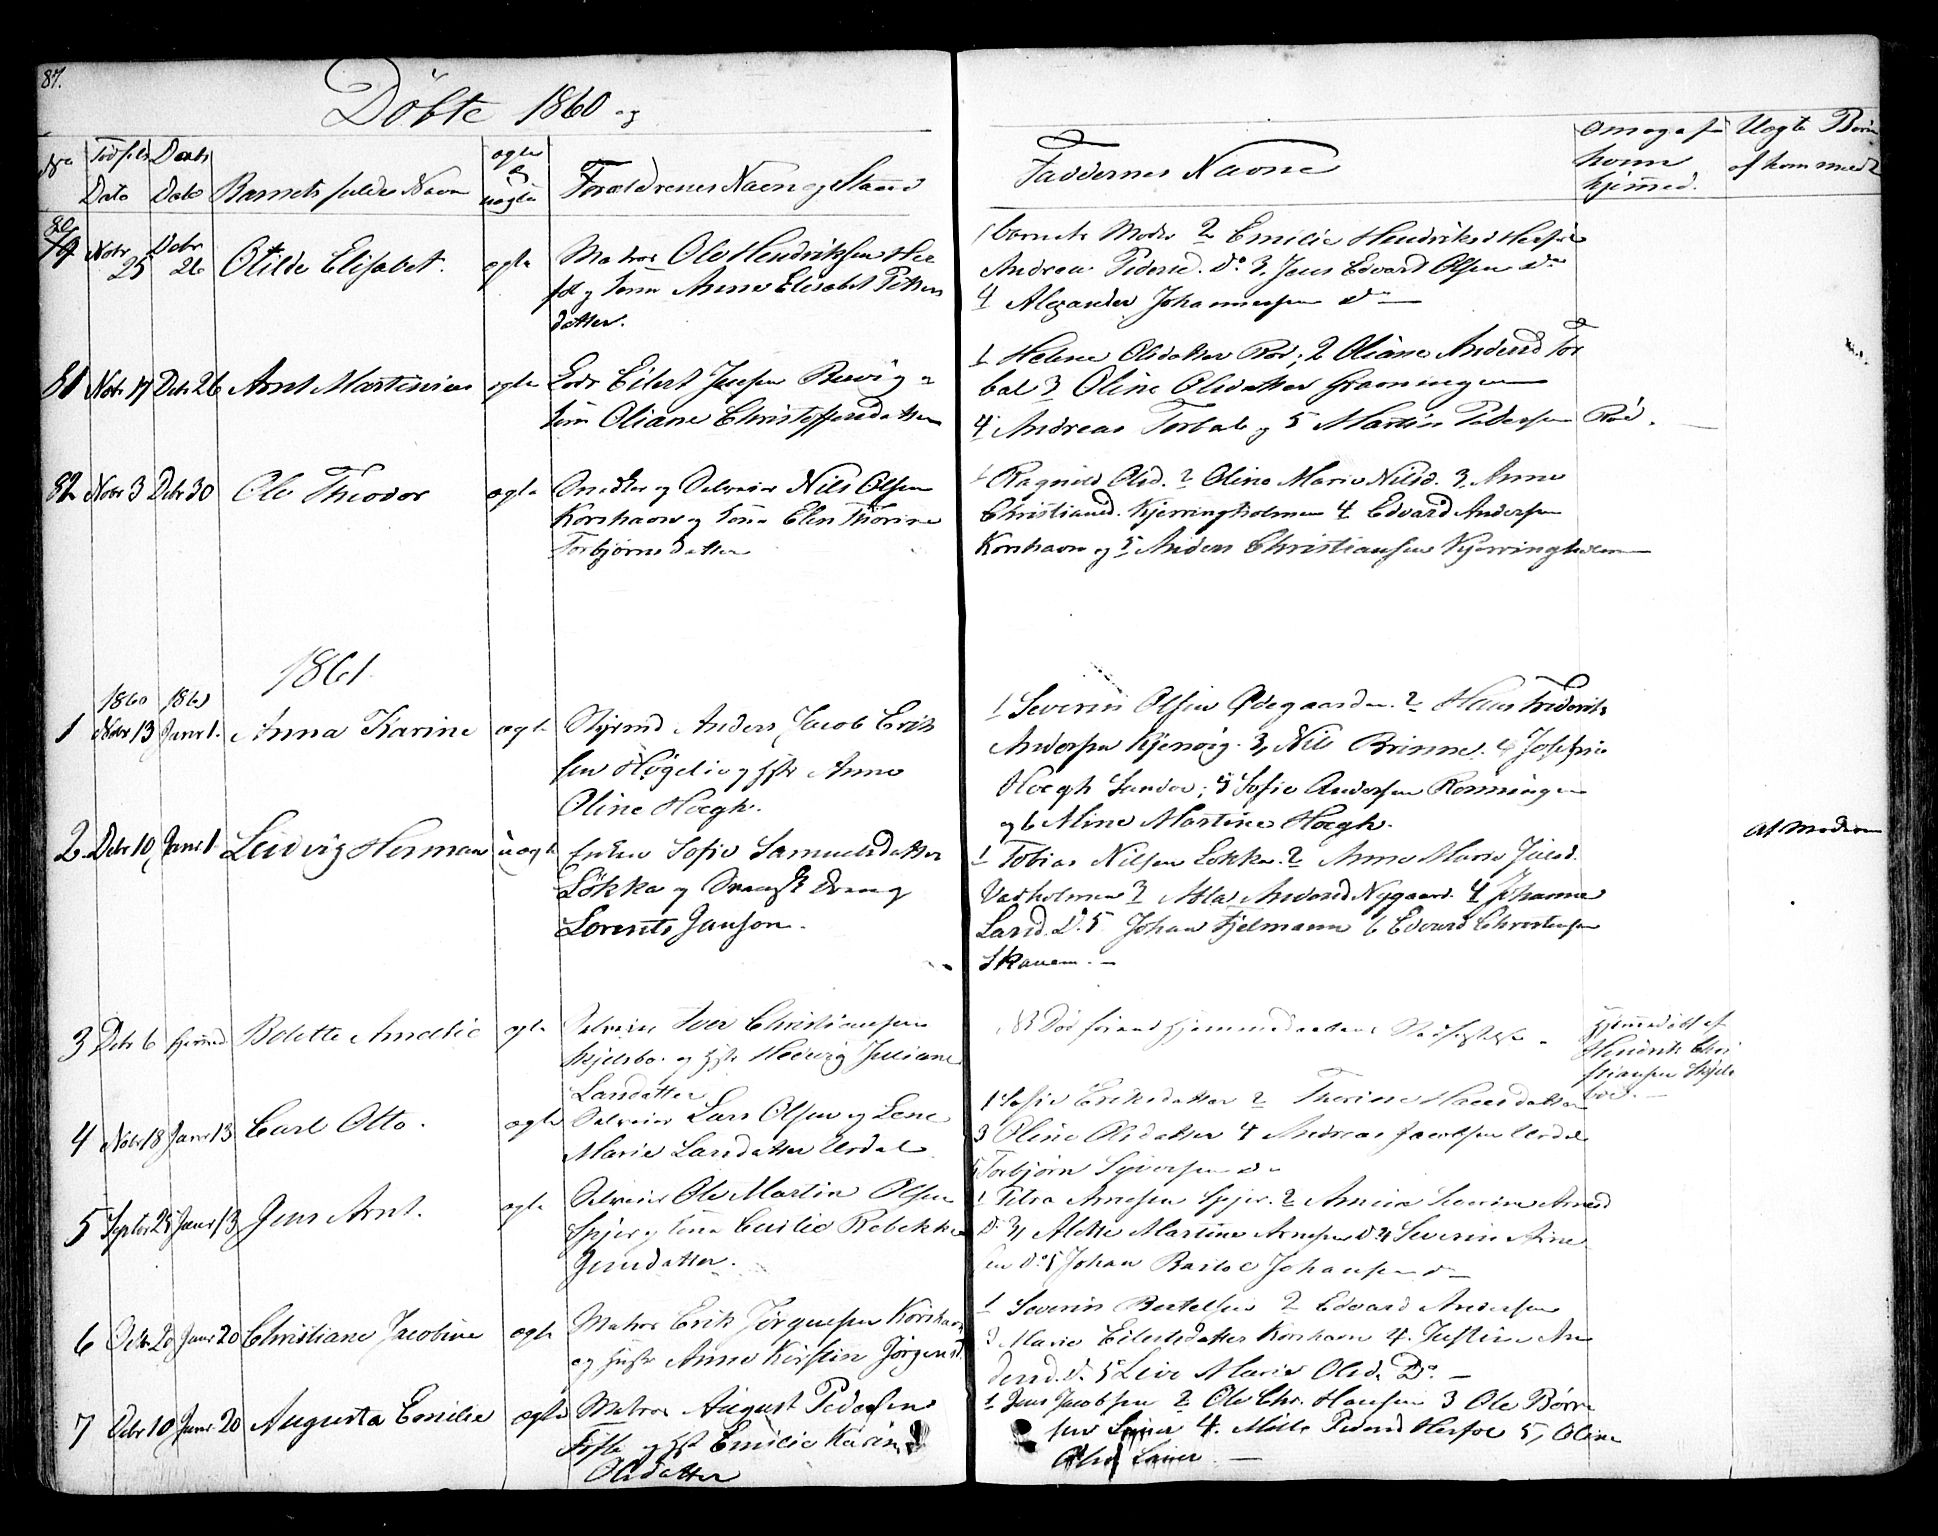 87.
Döbte 1860 og
No Födsels Dato Daabs Dato Barnets fulde Navn ægte og uægte Forældrenes Navn og Stand
Faddernes Navne om og af hvem hjemmed. Uægte Börn af hvem med
80
79 Nobr 25 Debr 26 Otilde Elisabet. ægte Matros Ole Hendriksen Her
föl og kone Anne Elisabet Petters
datter.
1 barnets Moder 2 Emilie Hendriksd Herföl
Andrea Pedersd. Do 3, Jens Edvard Olsen Do
4 Alexander Johannessen Do
81 Nobr 17 Debr 26 Arnt Martinius ægte Lods Eilert Jensen Brevig og
kone Oliane Christoffersdatter
1 Helene Olsdatter Röd; 2 Oliane Andersd Tor
bal 3 Oline Olsdatter Graaningen
4 Andreas Torbal og 5 Martin Pedersen Röd.
82 Nobr 3 Debr 30 Ole Theodor ægte Snedker og Selveier Nils Olsen
Korshavn og kone Elen Thorine
Torbjörnsdatter
1 Ragnild Olsd. 2 Oline Marie Nilsd. 3, Anne
Christiansd. Kjerringholmen 4 Edvard Andersen
Korshavn og 5 Anders Christiansen Kjerringholmen
1861
1860 1861
1 Nobr 13 Janr 1. Anna Karine ægte Styrmd Anders Jacob Erik
sen Högelie og Hstr Anne
Oline Hoegh.
1 Severin Olsen Ödegaarden. 2 Hans Frederik
Andersen Kjenvig. 3, Nils Brinne. 4 Josefine
Hoegh Sandöe; 5 Sofie Andersen Rönningen
og 6 Aline Martine Hoegh.
2 Debr 10 Janr 1 Ludvig Herman uægte Enken Sofie Samuelsdatter
Lökka og Svensk Dreng
Lorents Janson.
1 Tobias Nilsen Lökka. 2 Anne Marie Julsd.
Vadholmen 3 Abla Andersd Nygaard. 4 Johanne
Larsd. Do. 5 Johan Fjelmann 6 Edvard Christensen
Skanem. -
Af Moderen
3 Debr 6 hjemmd Bolette Amelie ægte Selveier Iver Christiansen
Skjelsbo og Hstr Hedevig Juliane
Larsdatter
NB Död förend Hjemmedaabens Stadfæstelse.
Hjemmedöbt af
Hendrik Chri
stiansen Skjels
boe. -
4 Nobr 18 Janr 13 Carl Otto. ægte Selveier Lars Olsen og Lene
Marie Larsdatter Urdal
1 Sofie Eriksdatter 2 Therine Hansdatter
3 Oline Olsdatter 4 Andreas Jacobsen Urdal
5 Torbjörn Syversen Do
5 Septbr 25 Janr 13 Jens Arnt. ægte Selveier Ole Martin Olsen
Spjer og kone Cecilie Rebekka
Jensdatter.
1 Petra Arnesen Spjer. 2 Amina Severine Arnesd
Do 3, Alette Martine Arnesen Do 4, Severin Arne
sen Do 5 Johan Bastol Johansen Do
6 Octbr 20 Janr 20 Christiane Jacobine ægte Matros Erik Jörgensen Korshavn
og Hustr Anne Kirstin Jörgensd.
1 Severin Bertelsen 2 Edvard Andersen
3 Marie Eilertsdatter Korshavn 4. Justine An
dersd. Do. 5 Live Marie Olsd. Do. -
7 Debr 10 Janr 20 Augusta Emilie ægte Matros August Pedersen
og Hst Emilie Karine
Olsdatter
1 Jens Jacobsen 2 Ole Chr. Hansen 3 Ole Börre
sen Lauer 4. Mille Pedersd Herföl 5, Oline
Olsd Lauer -